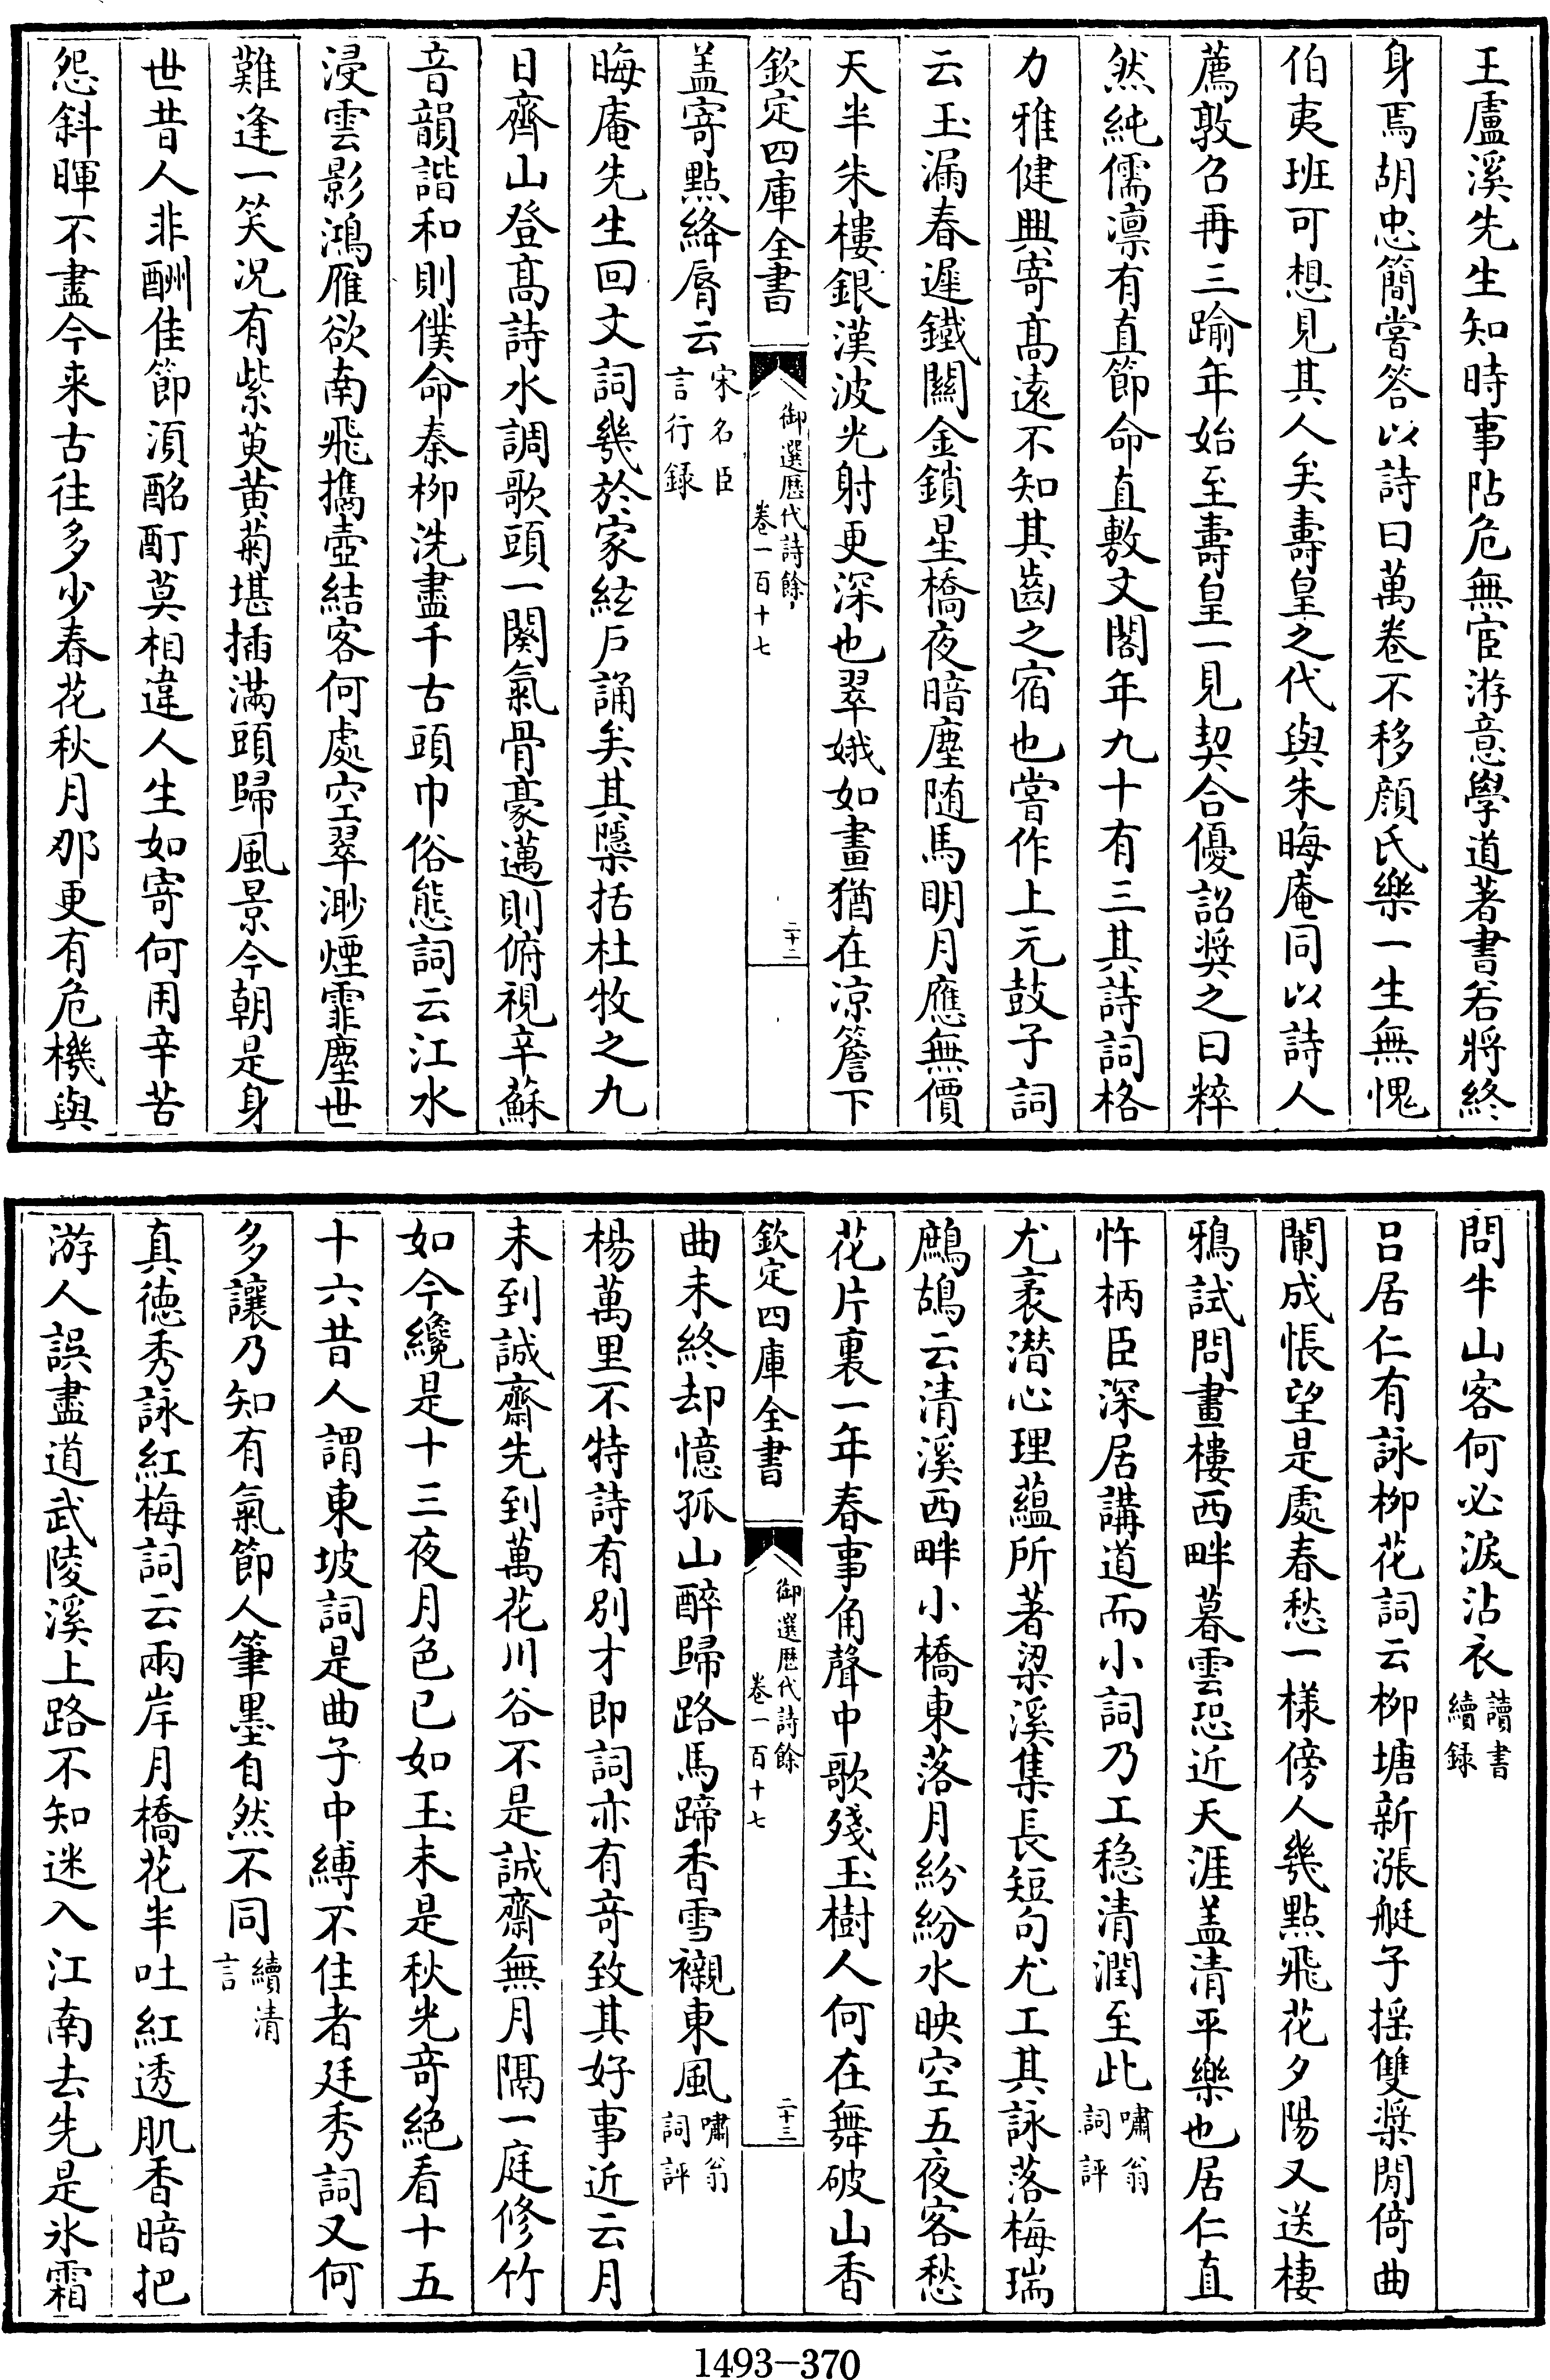 王盧溪先生知時事阽危無宦游意學道著書若將終
身焉胡忠簡嘗答以詩曰萬卷不移顔氏樂一生無愧
伯夷班可想見其人矣壽皇之代與朱晦庵同以詩人
薦敦召再三踰年始至壽皇一見契合優詔奬之曰粹
然純儒凛有直節命直敷文閣年九十有三其詩詞格
力雅健興寄髙逺不知其齒之宿也嘗作上元鼓子詞
云玉漏春遲鐵關金鎖星橋夜暗塵随馬明月應無價
天半朱樓銀漢波光射更深也翠娥如畫猶在凉簷下
欽定四庫全書
御選歴代詩餘
卷一百十七
二十二
盖寄㸃絳脣云宋名臣
言行録
晦庵先生回文詞幾於家絃戶誦矣其隱括杜牧之九
日齊山登髙詩水調歌頭一闋氣骨豪邁則俯視辛蘇
音韻諧和則僕命秦栁洗盡千古頭巾俗態詞云江水
浸雲影鴻雁欲南飛擕壺結客何處空翠渺煙霏塵世
難逢一笑况有紫萸黄菊堪插滿頭歸風景今朝是身
世昔人非酬佳節湏酩酊莫相違人生如寄何用辛苦
怨斜暉不盡今来古往多少春花秋月那更有危機與
問牛山客何必淚沾衣讀書
續録
吕居仁有詠栁花詞云栁塘新漲艇子揺雙槳閒倚曲
闌成悵望是處春愁一樣傍人幾㸃飛花夕陽又送棲
鴉試問畫樓西畔暮雲恐近天涯盖清平樂也居仁直
忤柄臣深居講道而小詞乃工穏清潤至此嘯翁
詞評
尤袤潜心理藴所著梁溪集長短句尤工其詠落梅瑞
鷓鴣云清溪西畔小橋東落月紛紛水映空五夜客愁
花片裏一年春事角聲中歌殘玉樹人何在舞破山香
欽定四庫全書
御選歴代詩餘
卷一百十七
二十三
曲未終却憶孤山醉歸路馬蹄香雪襯東風嘯翁
詞評
楊萬里不特詩有别才即詞亦有竒致其好事近云月
未到誠齋先到萬花川谷不是誠齋無月隔一庭修竹
如今纔是十三夜月色已如玉未是秋光竒絶看十五
十六昔人謂東坡詞是曲子中縛不住者廷秀詞又何
多讓乃知有氣節人筆墨自然不同續清
言
真徳秀詠紅梅詞云兩岸月橋花半吐紅透肌香暗把
游人誤盡道武陵溪上路不知迷入江南去先是氷霜
1493-370